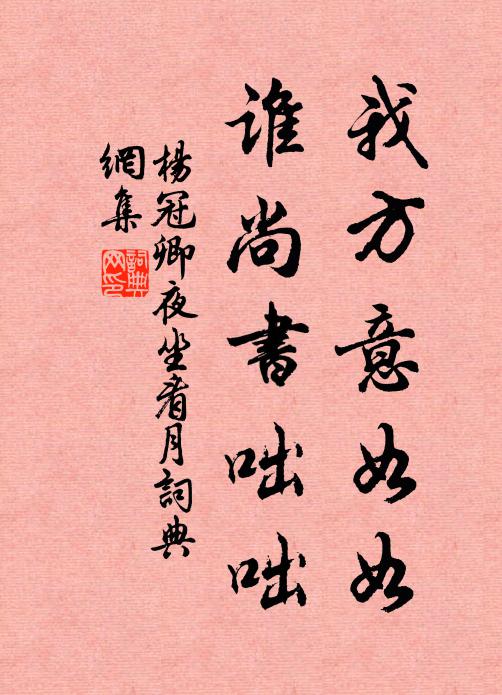 我方意如如
谁尚書咄咄
楊冠卿夜坐看月詞典
網集
詞典
网印